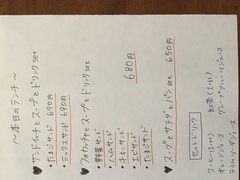 〜本日のランチ〜
♥ サンドイッチとスープとドリンク set
・たまごサンド 670円
・ミックスサンド 690円
♥ フォカッチャとスープとドリンク set
・野菜サンド
・ハムサンド
・チキンサンド
・エビサンド 680円
・たまごサンド
♥ スープとサラダとパン set 650円
セットドリンク
コーヒー(I・H) 紅茶(I・H)
オレンジジュース グレープフルーツジュース
ライムソーダジュース